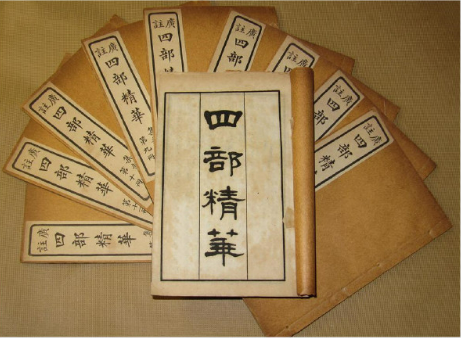 四部精華
廣註
四部精華
廣註
四部精華
第十
廣註
四部精華
第十
廣註
四部精華
第九
廣註
四部精
廣註
四部
廣註
四部
廣註
四部
廣註
四部